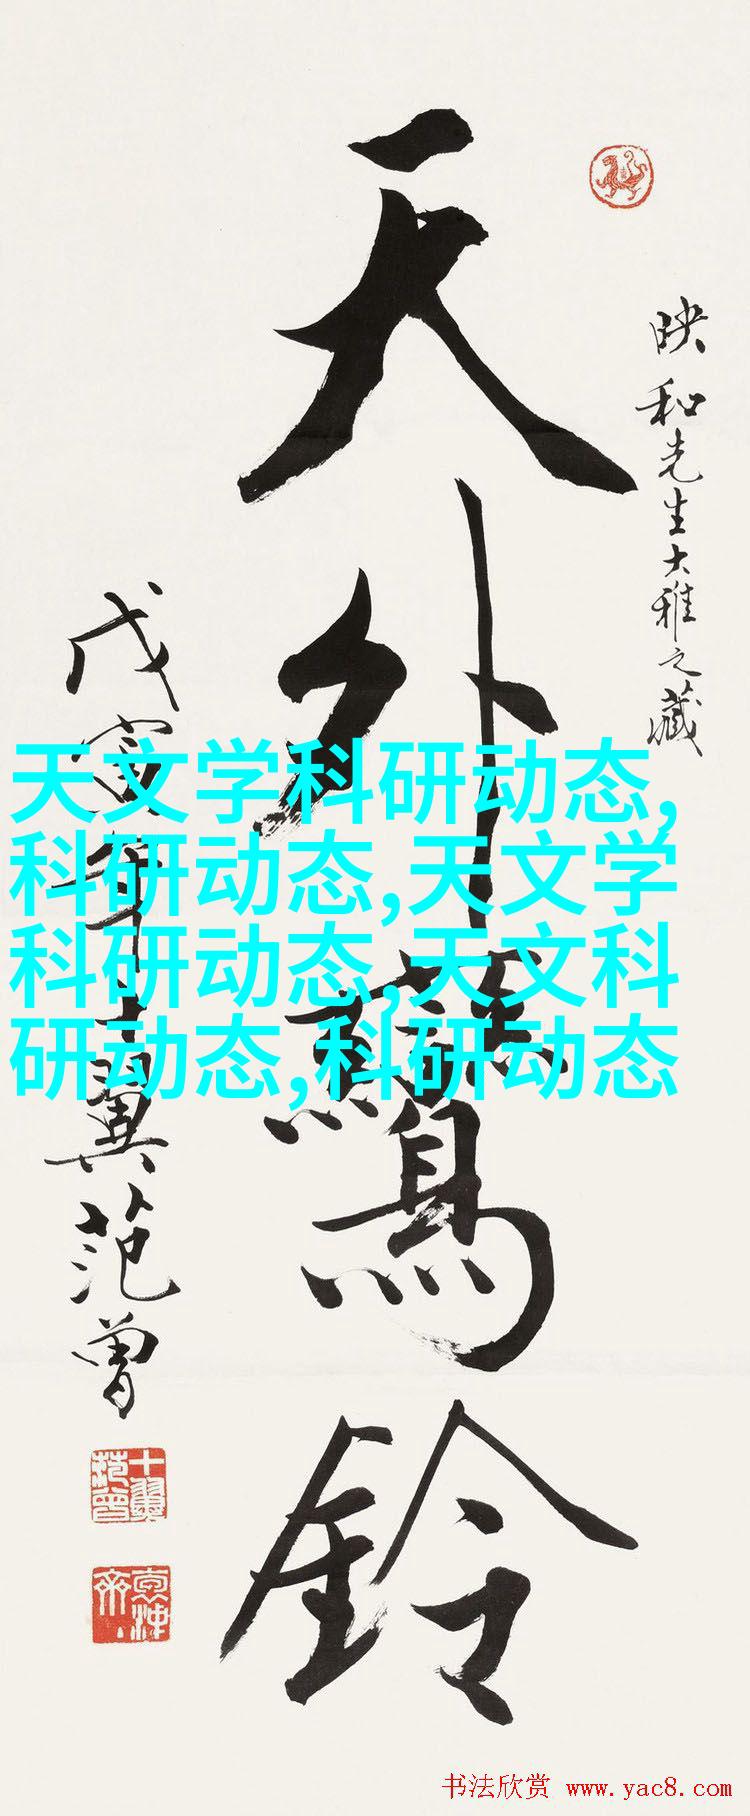 天外鸞鈴
映和先生大雅之藏
戊寅年十翼范曾
十翼范曾
天文学科研动态,
科研动态,天文学
科研动态,天文科
研动态,科研动态
书法欣赏 www.yac8.com